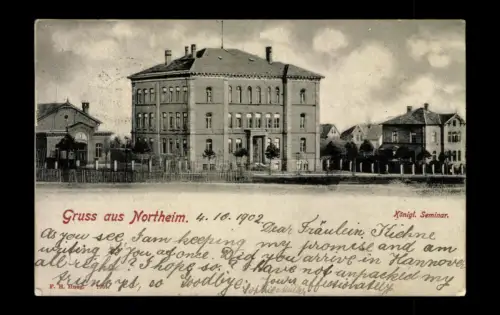 Gruss aus Northeim. 4. 10. 1902
Königl. Seminar.
Dear Fräulein Kühne
As you see, I am keeping my promise and am
writing to you at once. Did you arrive in Hannover
all right? I hope so. I have not unpacked my
trunk yet, so Goodbye, yours affectionately